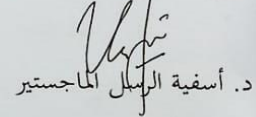 د. أسفية الرسل الماجستير